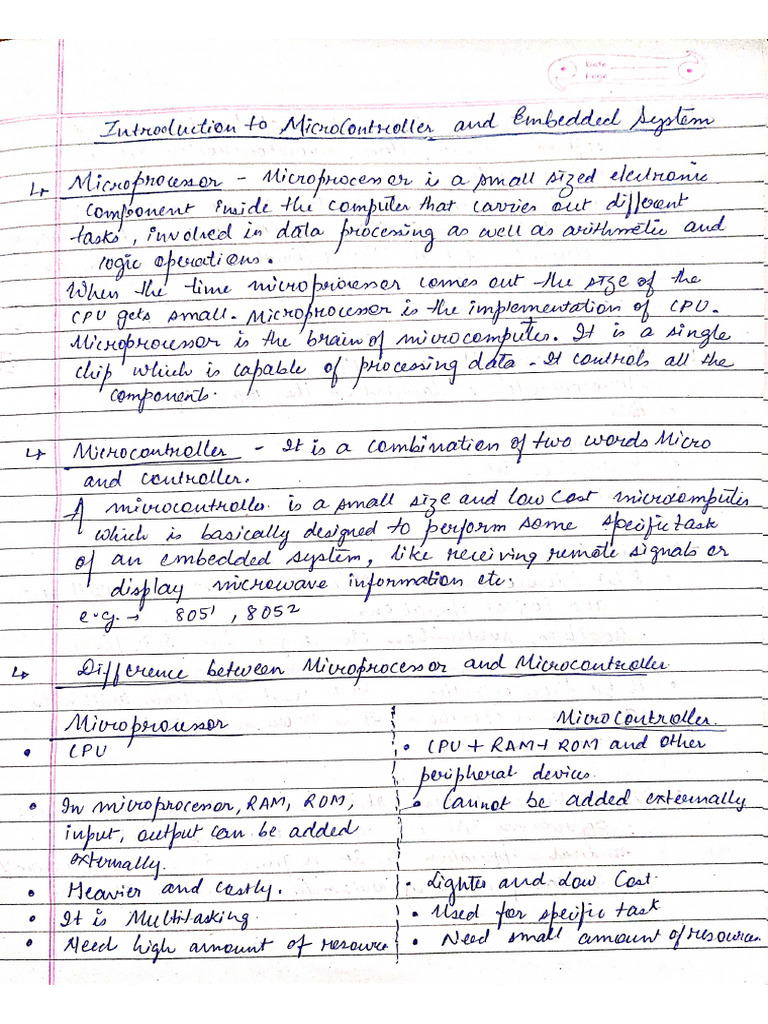 Date
Page
Introduction to Microcontroller and Embedded System
↳ Microprocessor - Microprocessor is a small sized electronic
component inside the computer that carries out different
tasks, involved in data processing as well as arithmetic and
logic operations.
When the time microprocessor comes out the size of the
CPU gets small. Microprocessor is the implementation of CPU.
Microprocessor is the brain of microcomputer. It is a single
chip which is capable of processing data - It controls all the
components.
↳ Microcontroller - It is a combination of two words Micro
and controller.
A microcontroller is a small size and low cost microcomputer
which is basically designed to perform some specific task
of an embedded system, like receiving remote signals or
display microwave information etc.
e.g. → 8051, 8052
↳ Difference between Microprocessor and Microcontroller
Microprocessor Microcontroller.
• CPU • CPU + RAM + ROM and other
peripheral devices.
• In microprocessor, RAM, ROM, • Cannot be added externally
input, output can be added
externally.
• Heavier and costly. • Lighter and Low Cost.
• It is Multitasking. • Used for specific task
• Need high amount of resource • Need small amount of resources.